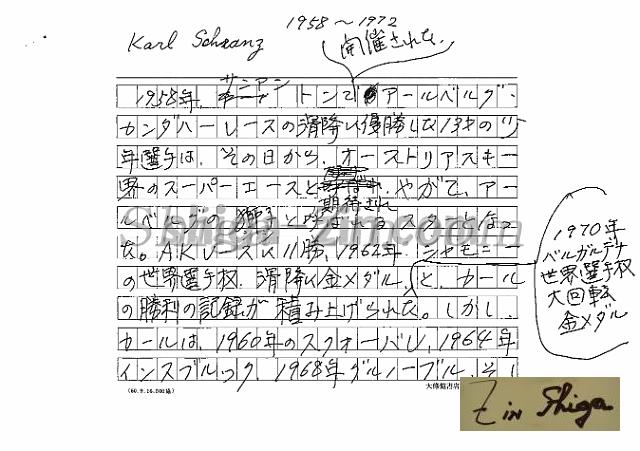 1958～1972
Karl Schranz
開催された
サンアン
1958年、トンで アールベルグ・
カンダハーレースの滑降に優勝した18才の少
年選手は、その日から、オーストリアスキー
界のスーパーエースと やがて、アー
期待され
ルベルグの獅子と呼ばれるスターとなっ
た。AKレースに11勝、1962年シャモニー
の世界選手権、滑降に金メダル、と、カール
の勝利の記録が積み上げられた。しかし、
カールは、1960年のスクォーバレ、1964年
インスブルック、1968年グルノーブル、そし
1970年
ベルガルデナ
世界選手権
大回転
金メダル
大修館書店
Shiga-Zin.com
Z in Shiga